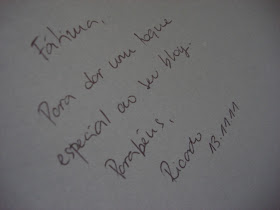 Fátima,
Para dar um toque
especial ao seu blog.
Parabéns,
Ricardo
13.11.11